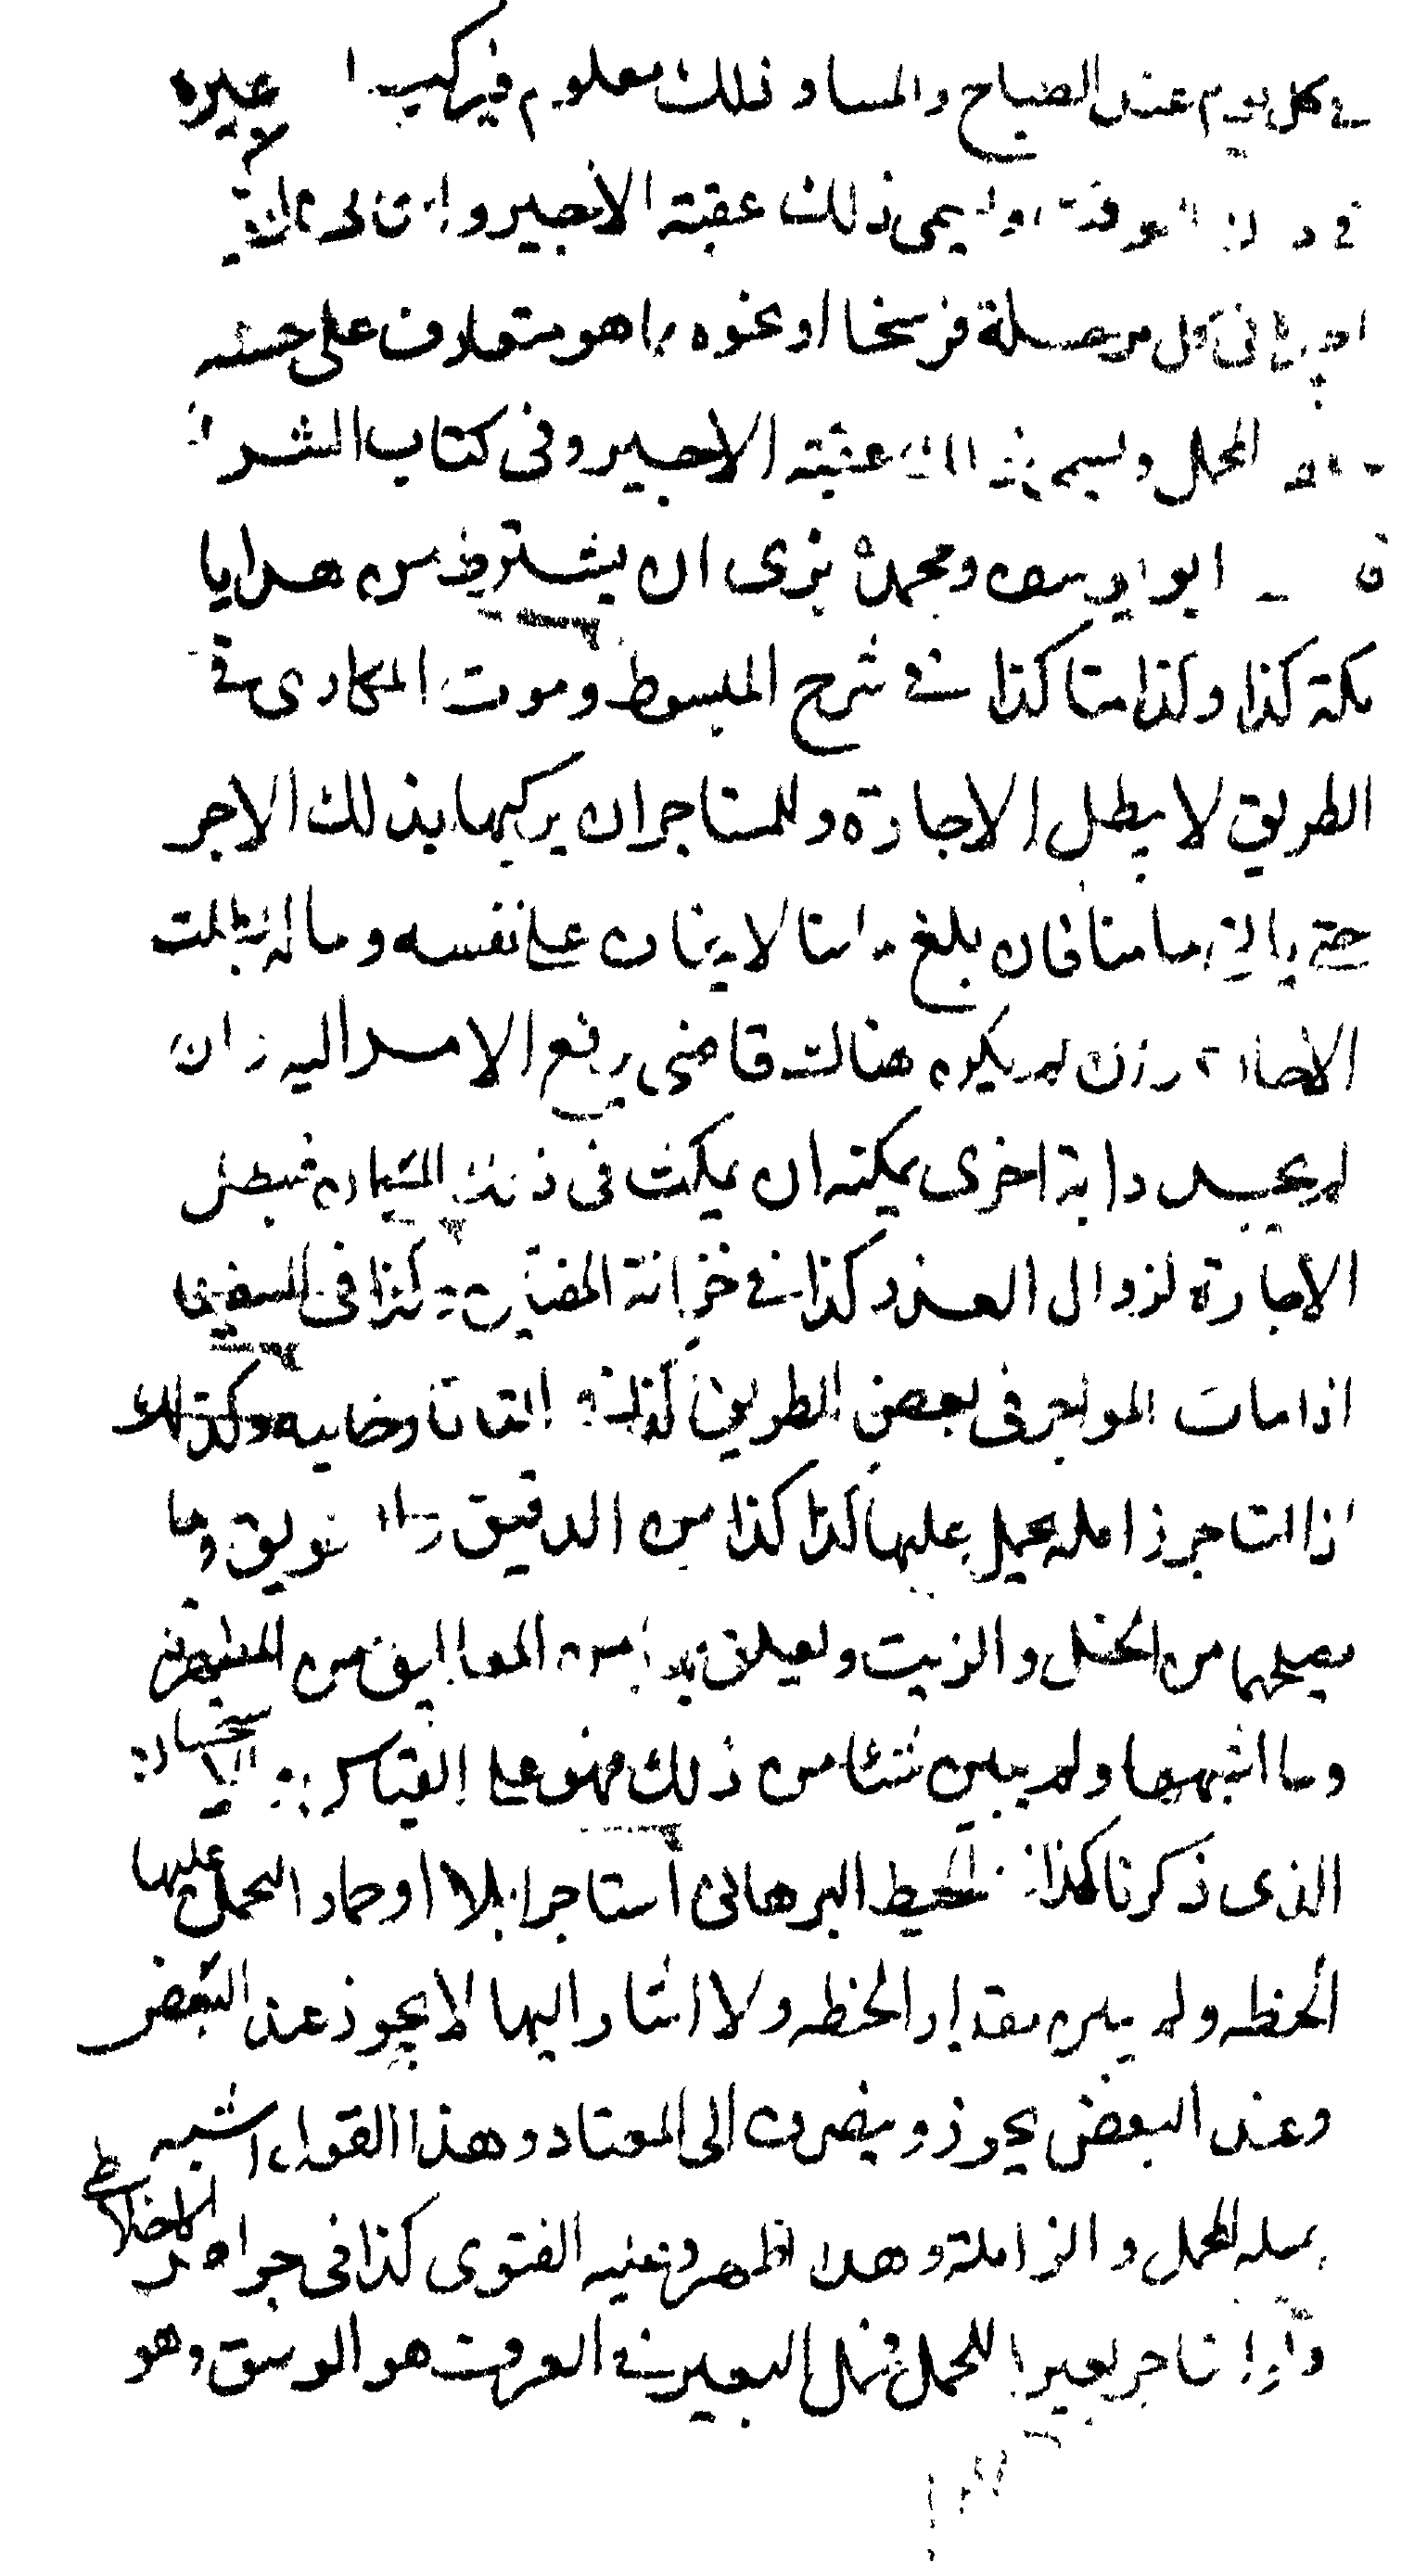 في كل يوم عند الصباح والمسا وذلك معلوم فيركب اجيره
في الوقت ويسمى ذلك عقبة الاجير وان
اجيره في كل مرحلة فرسخا او نحوه مما هو متعارف على خشبه
المحمل ويسمى ذلك عقبة الاجير وفي كتاب الشر
ابو يوسف ومحمد نرى ان يشترط من هدايا
مكة كذا وكذا منا كذا في شرح المبسوط وموت المكارى في
الطريق لا يبطل الاجارة وللمستاجر ان يركبها بذلك الاجر
حتى ياتي مامنا فان بلغ مامنا لا يخاف على نفسه وماله بطلت
الاجارة وان لم يكن هنالك قاضى يرفع الامر اليه وان
لم يجد دابة اخرى يمكنه ان يمكث في ذلك المكان تبطل
الاجارة لزوال العذر كذا في خزانة المفتين وكذا في السفينة
اذا مات المواجر في بعض الطريق كذا التاتارخانيه وكذلك
اذا استاجر زاملة يحمل عليها كذا كذا من الدقيق والسويق وما
يصلحهما من الخل والزيت ويعلق بها من المعاليق من المطهرة
وما اشبهها ولم يبين شئا من ذلك فهو على القياس والاستحسان
الذى ذكرنا كذا المحيط البرهانى استاجر ابلا او حمار اليحمل عليها
الحنطه ولم يبين مقدار الحنطه ولا اشار اليها لا يجوز عند البعض
وعند البعض يجوز وينصرف الى المعتاد وهذا القول اشبه
بمسله المحمل والزاملة وهذا اظهر وعليه الفتوى كذا في جواهر الاخلاطي
واذا استاجر بعيرا للحمل فحمل البعير في العرف هو الوسق وهو